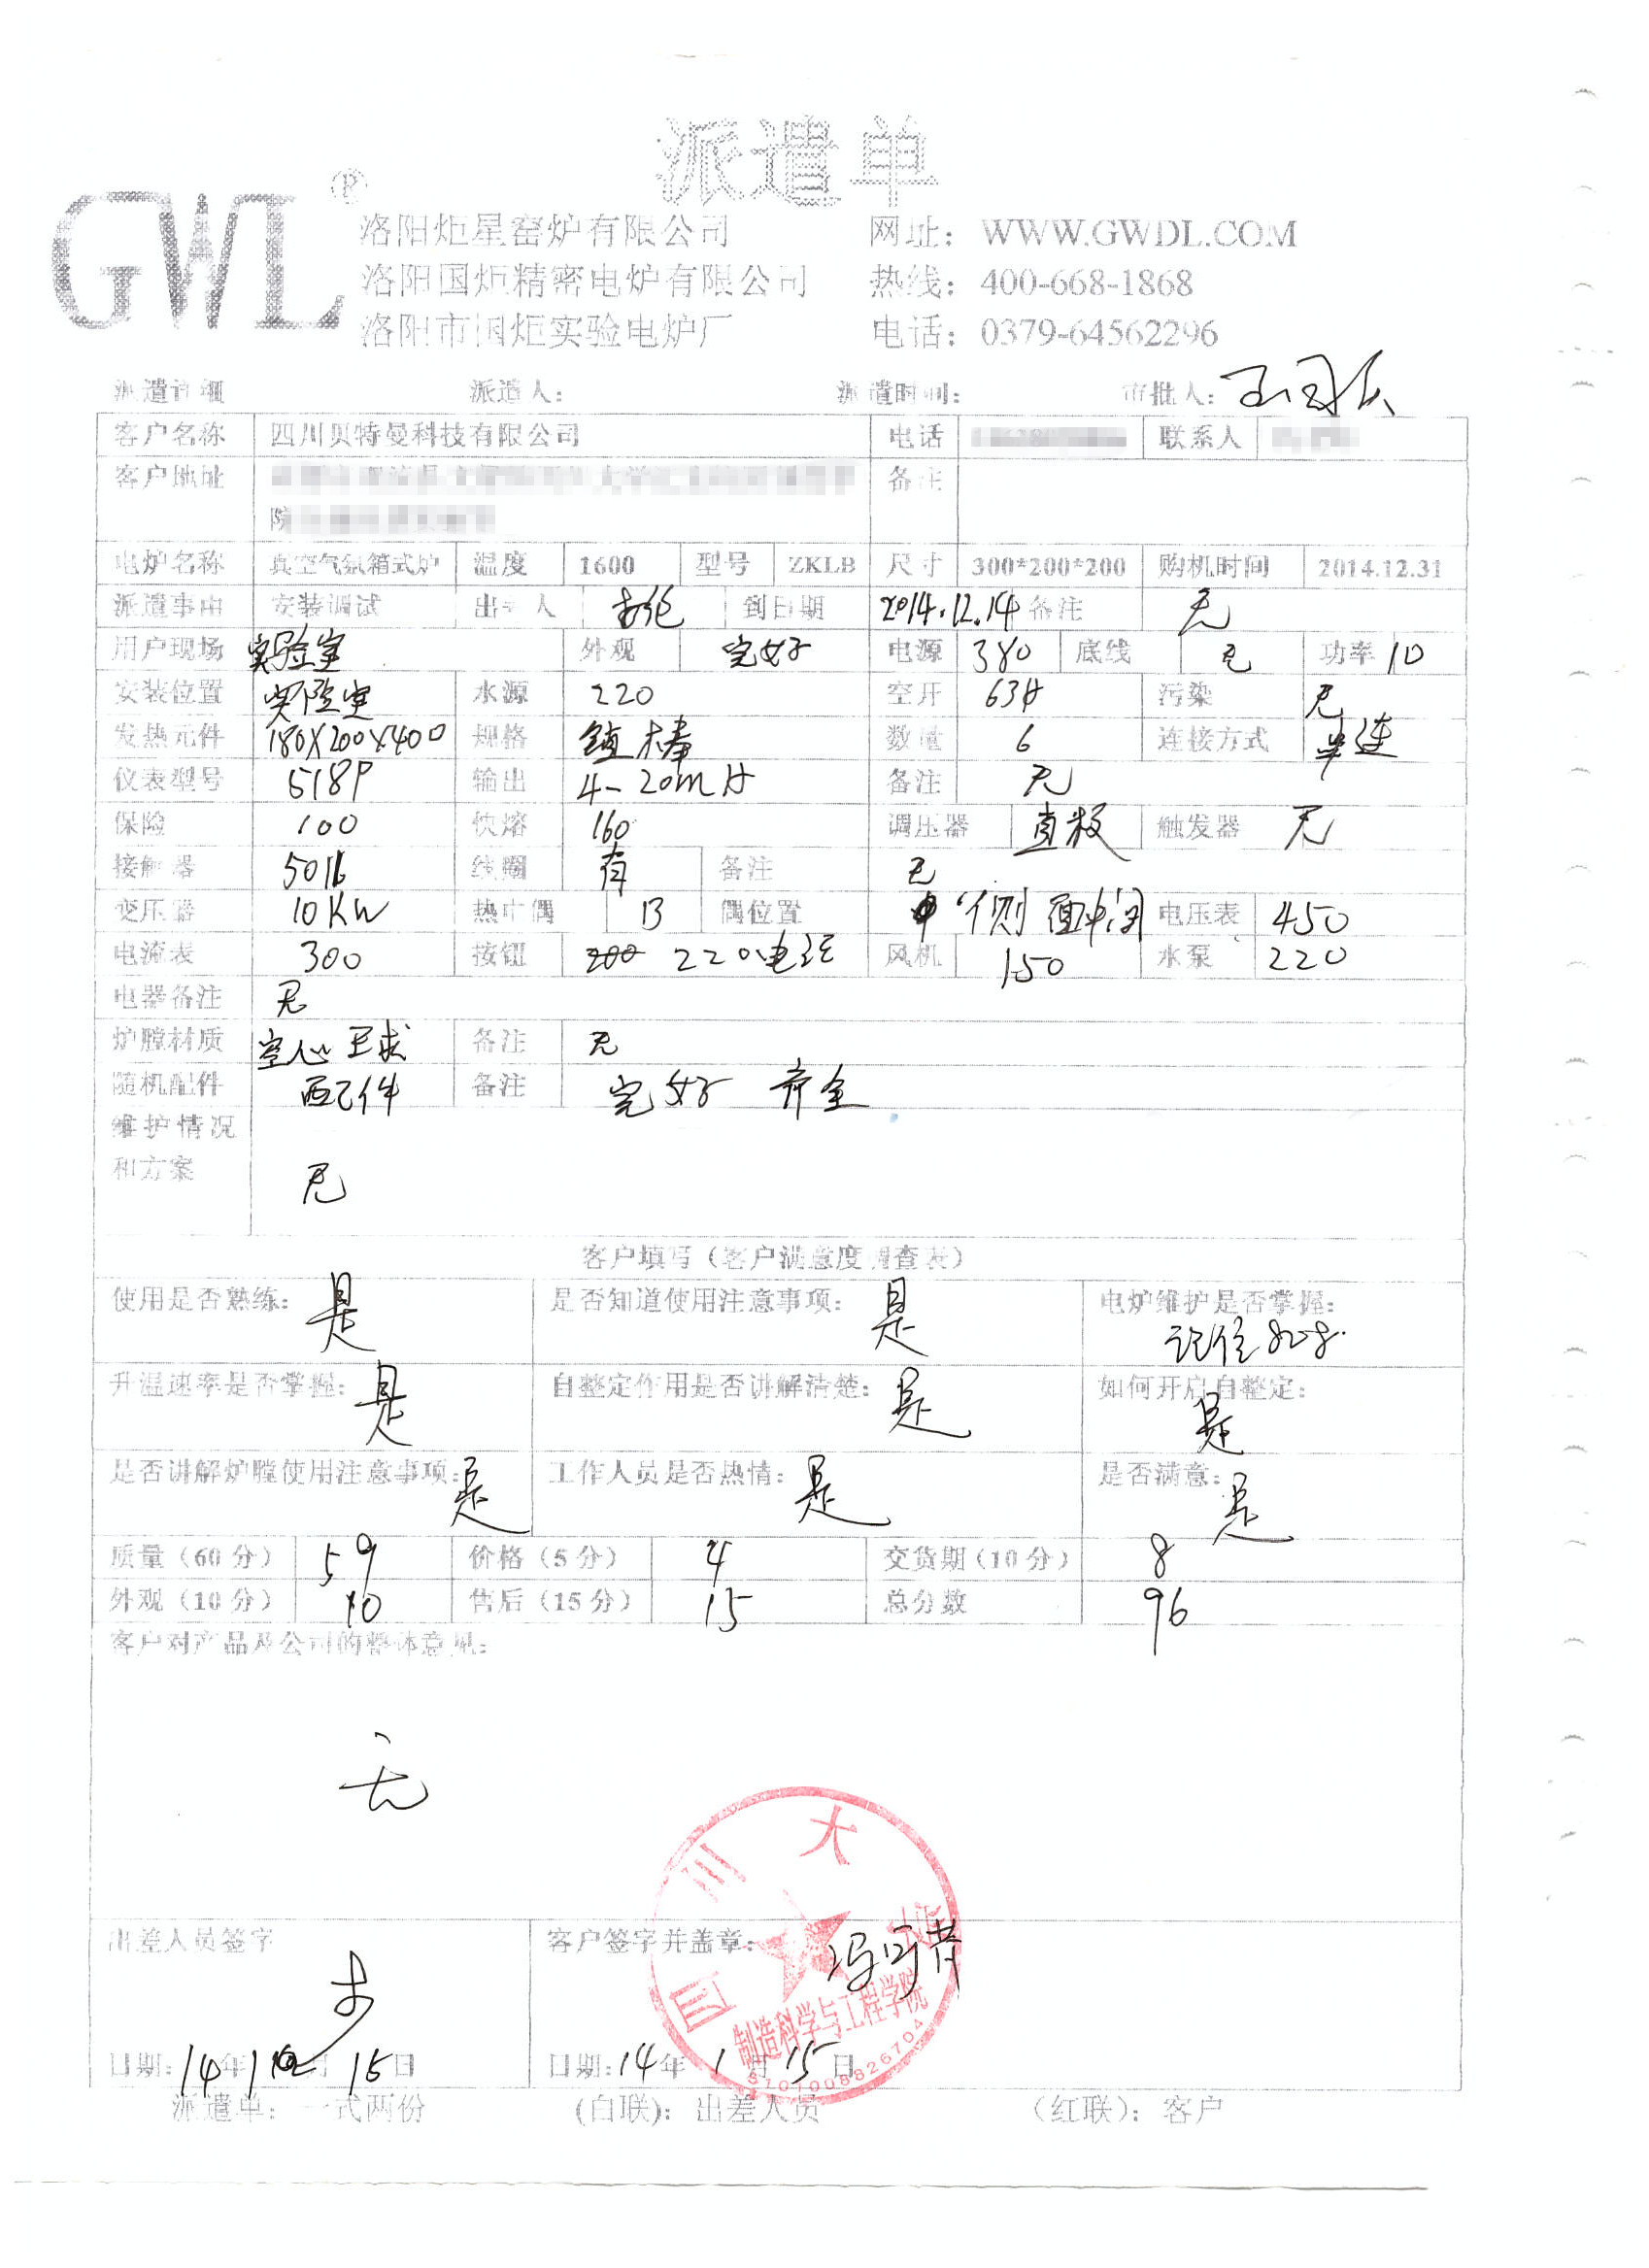 派遣单
GWL
洛阳炬星窑炉有限公司 网址：WWW.GWDL.COM
洛阳国炬精密电炉有限公司 热线：400-668-1868
洛阳市国炬实验电炉厂 电话：0379-64562296
派遣详细 派遣人： 派遣时间： 审批人：
客户名称 四川贝特曼科技有限公司 电话 联系人
客户地址 备注
院
电炉名称 真空气氛箱式炉 温度 1600 型号 ZKLB 尺寸 300*200*200 购机时间 2014.12.31
派遣事由 安装调试 出差人 到日期 2014.12.14 备注 无
用户现场 实验室 外观 完好 电源 380 底线 无 功率 10
安装位置 实验室 水源 220 空开 63A 污染 无
发热元件 180X200X400 规格 棒 数量 6 连接方式 串连
仪表型号 518P 输出 4-20mA 备注 无
保险 100 快熔 160 调压器 触发器 无
接触器 5016 线圈 有 备注 无
变压器 10KW 热电偶 B 偶位置 侧面中间 电压表 450
电流表 300 按钮 220电压 风机 150 水泵 220
电器备注 无
炉膛材质 空心球 备注 无
随机配件 配件 备注 完好 齐全
维护情况
和方案 无
客户填写（客户满意度调查表）
使用是否熟练：是 是否知道使用注意事项：是 电炉维护是否掌握：
升温速率是否掌握：是 自整定作用是否讲解清楚：是 如何开启自整定：是
是否讲解炉膛使用注意事项：是 工作人员是否热情：是 是否满意：是
质量（60分） 59 价格（5分） 4 交货期（10分） 8
外观（10分） 10 售后（15分） 15 总分数 96
客户对产品及公司的整体意见：
无
四川大学
制造科学与工程学院
5101008826704
出差人员签字 客户签字并盖章：
日期：14年12月15日 日期：14年1月15日
派遣单：一式两份 (白联)：出差人员 （红联）：客户